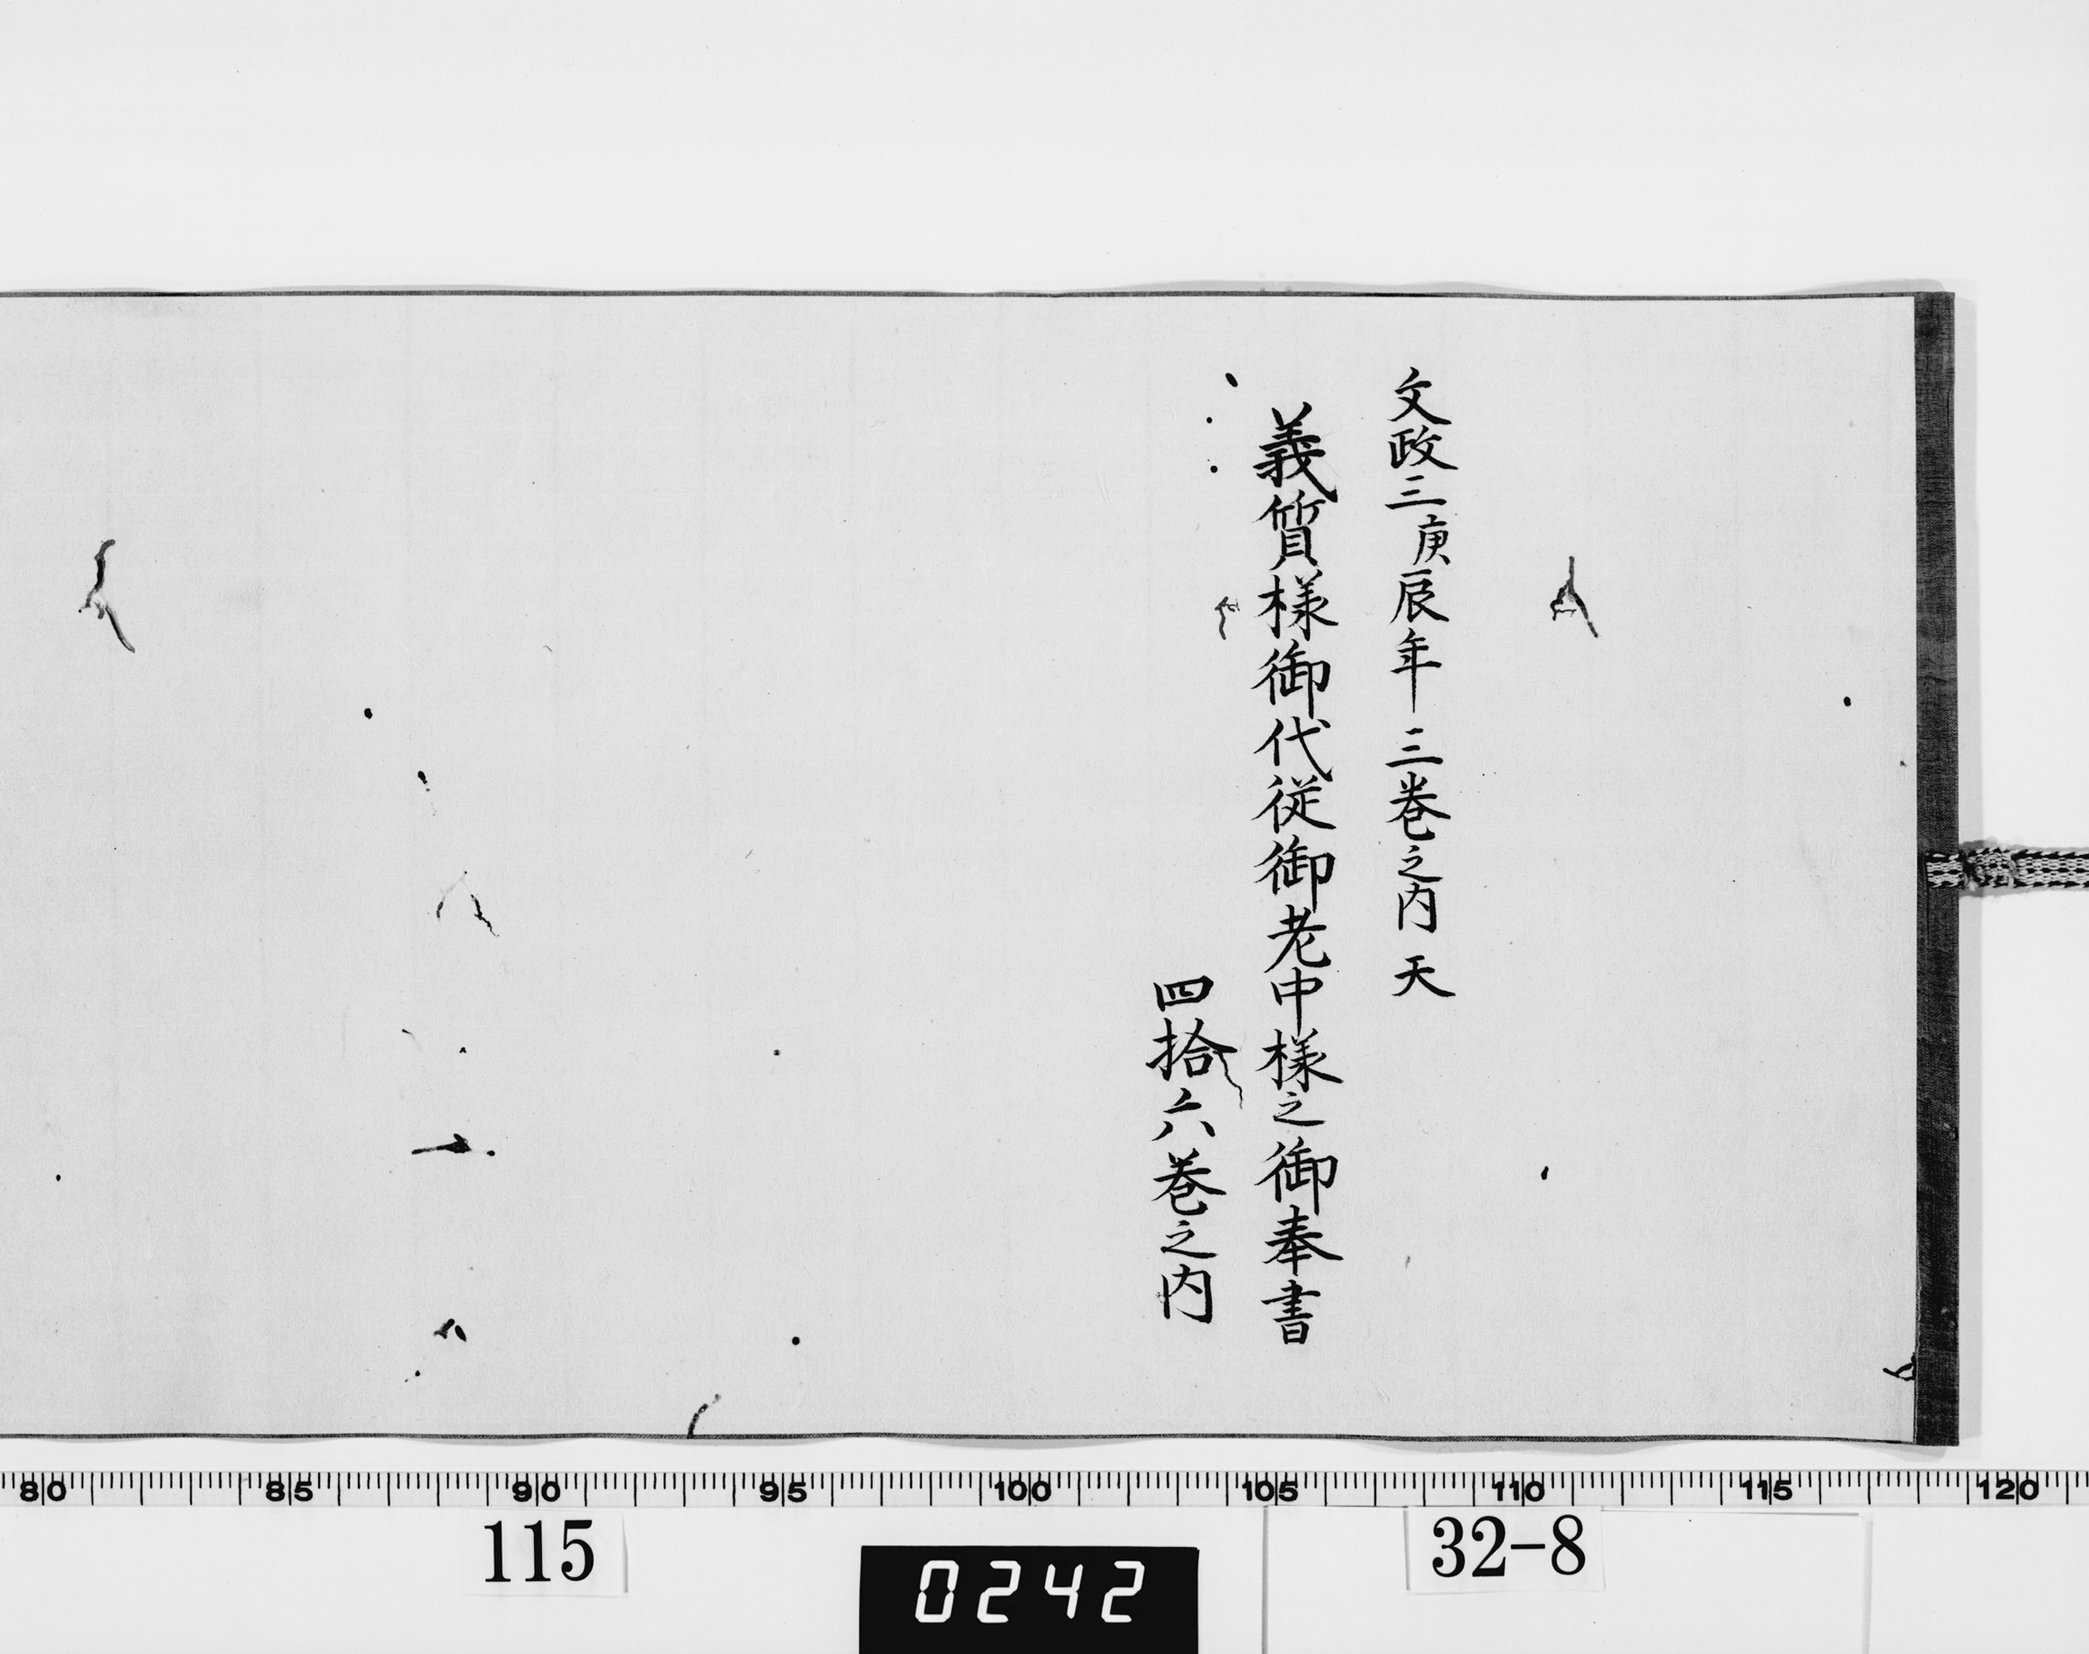 文政三庚辰年 三巻之内 天
義質様御代従御老中様之御奉書
四拾六巻之内
80 85 90 95 100 105 110 115 120
115
0242
32-8